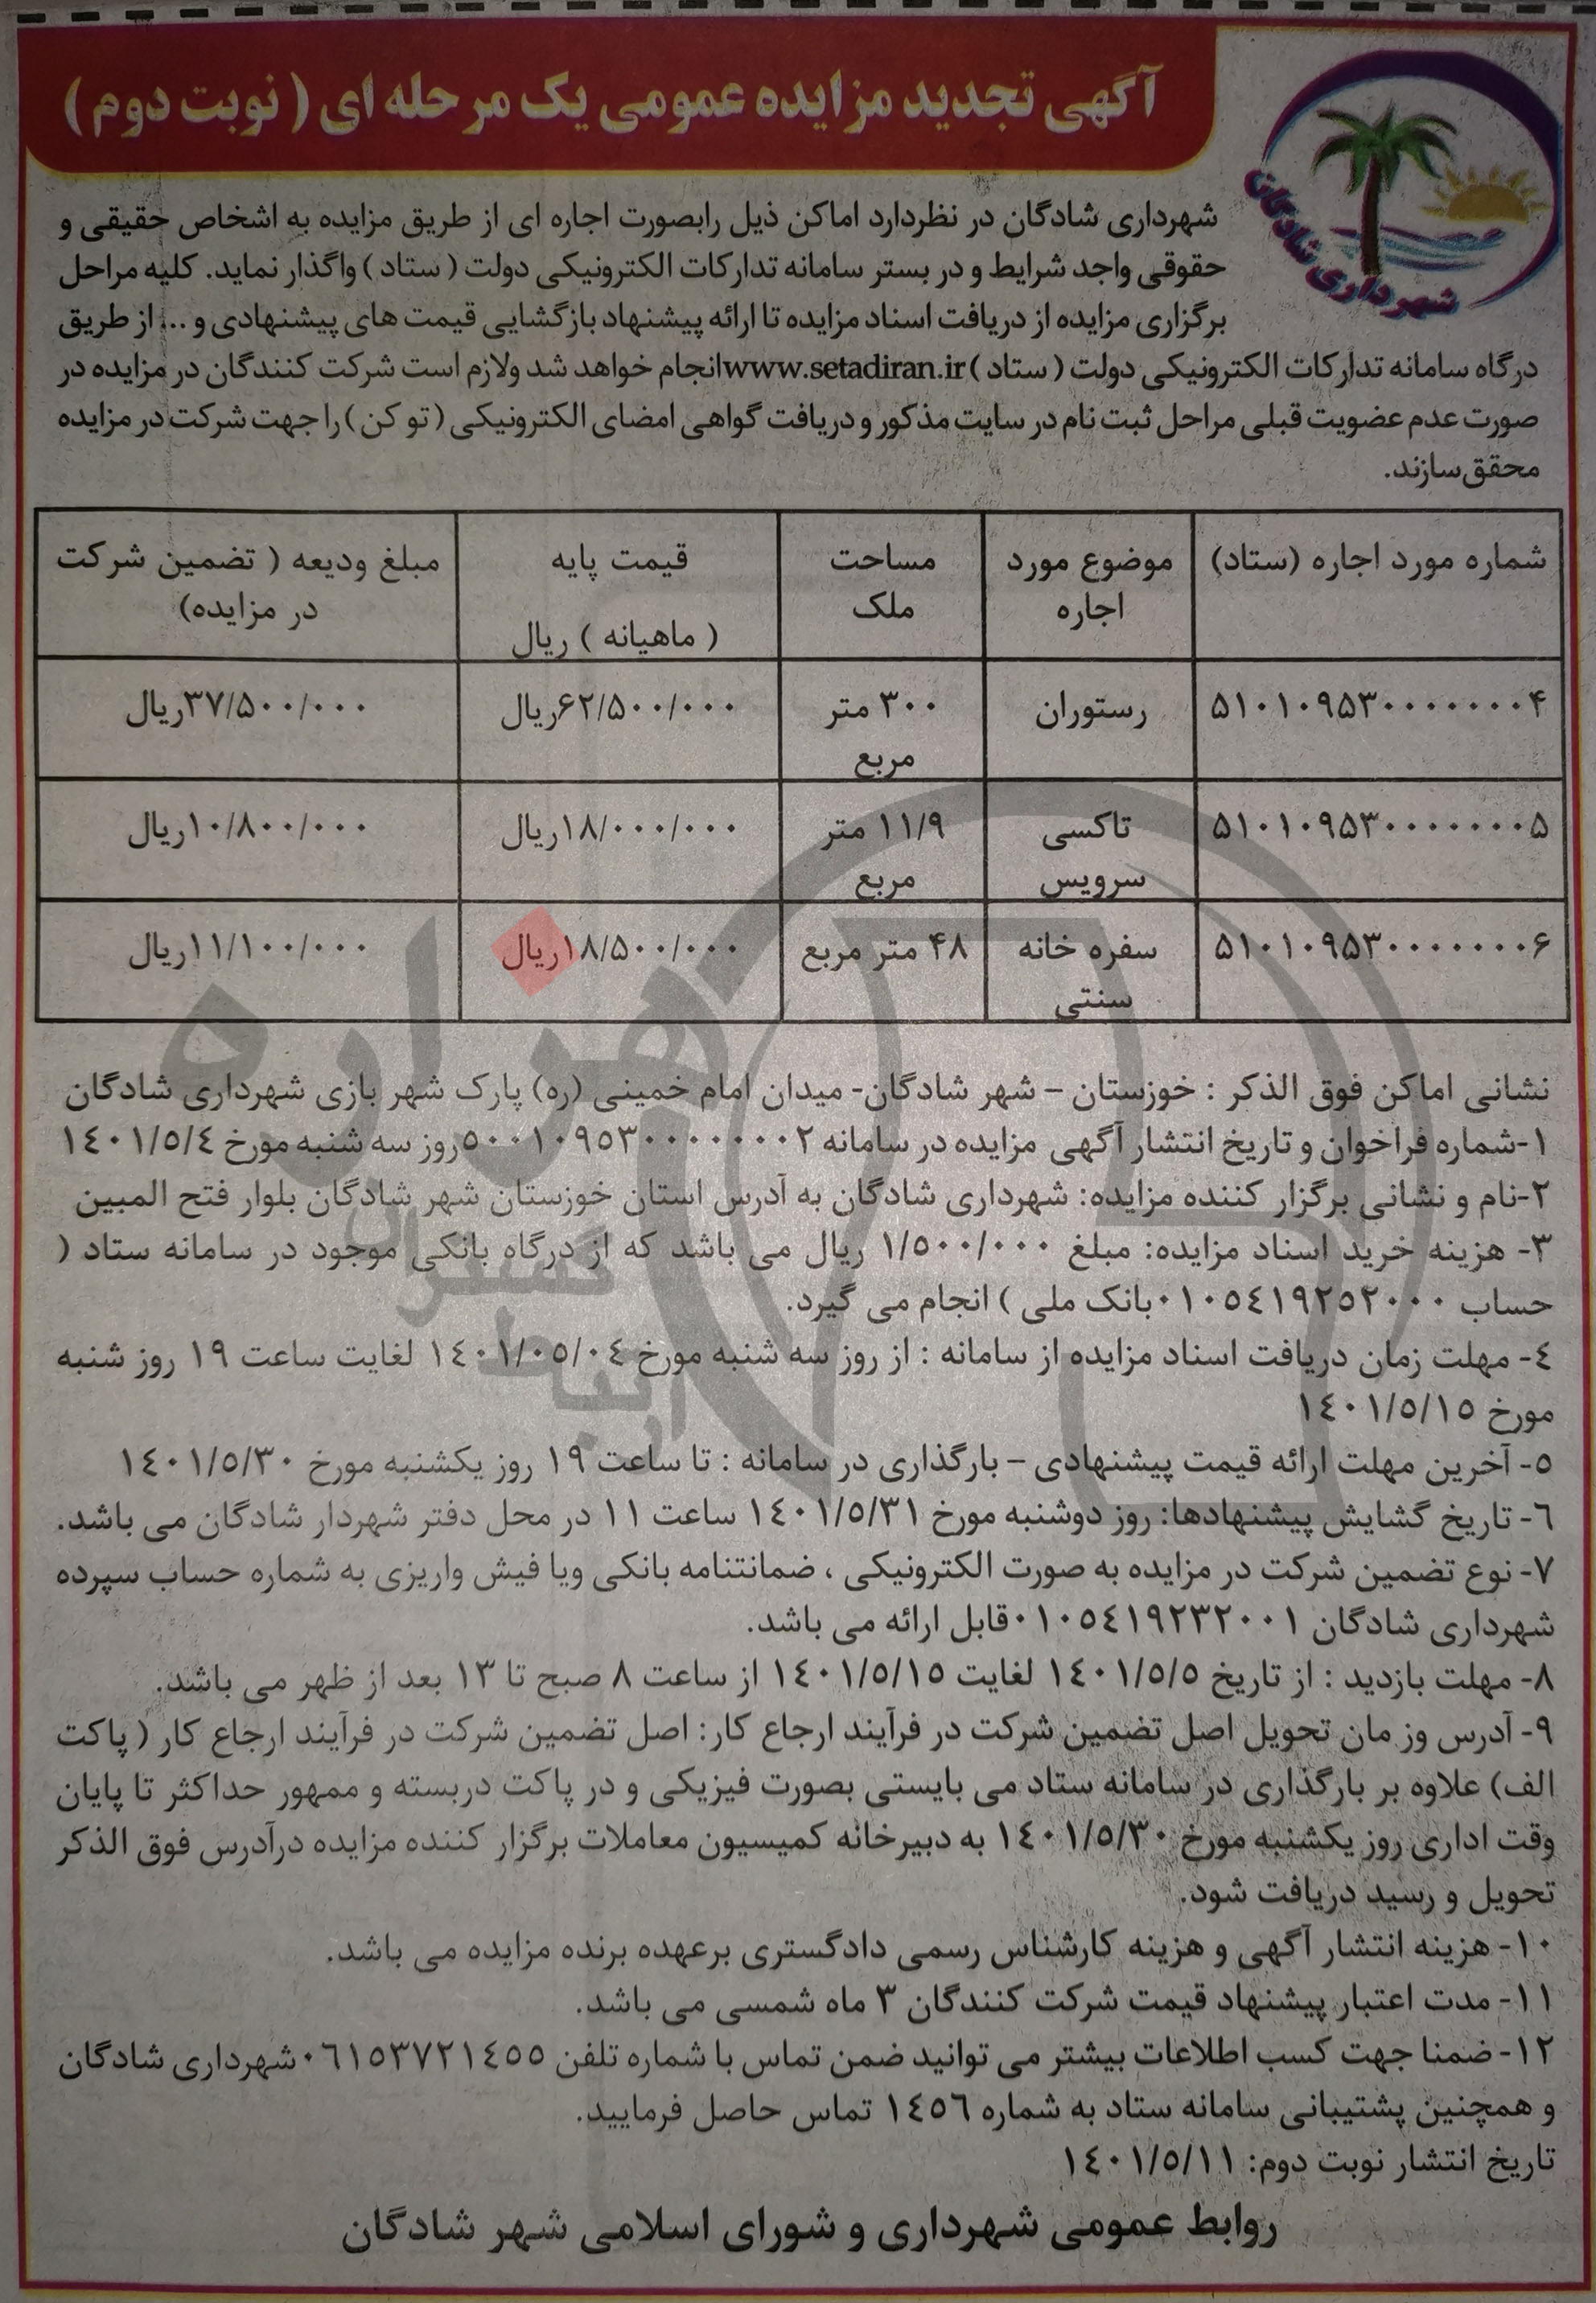 آگهی تجدید مزایده عمومی یک مرحله ای ( نوبت دوم )
شهرداری شادگان
شهرداری شادگان در نظردارد اماکن ذیل رابصورت اجاره ای از طریق مزایده به اشخاص حقیقی و
حقوقی واجد شرایط و در بستر سامانه تدارکات الکترونیکی دولت ( ستاد ) واگذار نماید. کلیه مراحل
برگزاری مزایده از دریافت اسناد مزایده تا ارائه پیشنهاد بازگشایی قیمت های پیشنهادی و ... از طریق
درگاه سامانه تدارکات الکترونیکی دولت ( ستاد ) www.setadiran.ir انجام خواهد شد ولازم است شرکت کنندگان در مزایده در
صورت عدم عضویت قبلی مراحل ثبت نام در سایت مذکور و دریافت گواهی امضای الکترونیکی ( توکن ) را جهت شرکت در مزایده
محقق سازند.
شماره مورد اجاره (ستاد) موضوع مورد اجاره مساحت ملک قیمت پایه ( ماهیانه ) ریال مبلغ ودیعه ( تضمین شرکت در مزایده)
۵۱۰۱۰۹۵۳۰۰۰۰۰۰۰۰۴ رستوران ۳۰۰ متر مربع ۶۲/۵۰۰/۰۰۰ریال ۳۷/۵۰۰/۰۰۰ریال
۵۱۰۱۰۹۵۳۰۰۰۰۰۰۰۰۵ تاکسی سرویس ۱۱/۹ متر مربع ۱۸/۰۰۰/۰۰۰ریال ۱۰/۸۰۰/۰۰۰ریال
۵۱۰۱۰۹۵۳۰۰۰۰۰۰۰۰۶ سفره خانه سنتی ۴۸ متر مربع ۱۸/۵۰۰/۰۰۰ریال ۱۱/۱۰۰/۰۰۰ریال
نشانی اماکن فوق الذکر : خوزستان – شهر شادگان- میدان امام خمینی (ره) پارک شهر بازی شهرداری شادگان
۱-شماره فراخوان و تاریخ انتشار آگهی مزایده در سامانه ۵۰۰۱۰۹۵۳۰۰۰۰۰۰۰۲روز سه شنبه مورخ ۱٤۰۱/۵/٤
۲-نام و نشانی برگزار کننده مزایده: شهرداری شادگان به آدرس استان خوزستان شهر شادگان بلوار فتح المبین
۳- هزینه خرید اسناد مزایده: مبلغ ۱/۵۰۰/۰۰۰ ریال می باشد که از درگاه بانکی موجود در سامانه ستاد (
حساب ۰۱۰۵٤۱۹۲۵۲۰۰۰بانک ملی ) انجام می گیرد.
٤- مهلت زمان دریافت اسناد مزایده از سامانه : از روز سه شنبه مورخ ۱٤۰۱/۰۵/۰٤ لغایت ساعت ۱۹ روز شنبه
مورخ ۱٤۰۱/۵/۱۵
۵- آخرین مهلت ارائه قیمت پیشنهادی – بارگذاری در سامانه : تا ساعت ۱۹ روز یکشنبه مورخ ۱٤۰۱/۵/۳۰
٦- تاریخ گشایش پیشنهادها: روز دوشنبه مورخ ۱٤۰۱/۵/۳۱ ساعت ۱۱ در محل دفتر شهردار شادگان می باشد.
۷- نوع تضمین شرکت در مزایده به صورت الکترونیکی ، ضمانتنامه بانکی ویا فیش واریزی به شماره حساب سپرده
شهرداری شادگان ۰۱۰۵٤۱۹۲۳۲۰۰۱قابل ارائه می باشد.
۸- مهلت بازدید : از تاریخ ۱٤۰۱/۵/۵ لغایت ۱٤۰۱/۵/۱۵ از ساعت ۸ صبح تا ۱۳ بعد از ظهر می باشد.
۹- آدرس وز مان تحویل اصل تضمین شرکت در فرآیند ارجاع کار: اصل تضمین شرکت در فرآیند ارجاع کار ( پاکت
الف) علاوه بر بارگذاری در سامانه ستاد می بایستی بصورت فیزیکی و در پاکت دربسته و ممهور حداکثر تا پایان
وقت اداری روز یکشنبه مورخ ۱٤۰۱/۵/۳۰ به دبیرخانه کمیسیون معاملات برگزار کننده مزایده درآدرس فوق الذکر
تحویل و رسید دریافت شود.
۱۰- هزینه انتشار آگهی و هزینه کارشناس رسمی دادگستری برعهده برنده مزایده می باشد.
۱۱- مدت اعتبار پیشنهاد قیمت شرکت کنندگان ۳ ماه شمسی می باشد.
۱۲- ضمنا جهت کسب اطلاعات بیشتر می توانید ضمن تماس با شماره تلفن ۰٦۱۵۳۷۲۱٤۵۵شهرداری شادگان
و همچنین پشتیبانی سامانه ستاد به شماره ۱٤۵٦ تماس حاصل فرمایید.
تاریخ انتشار نوبت دوم: ۱٤۰۱/۵/۱۱
روابط عمومی شهرداری و شورای اسلامی شهر شادگان
هزاره